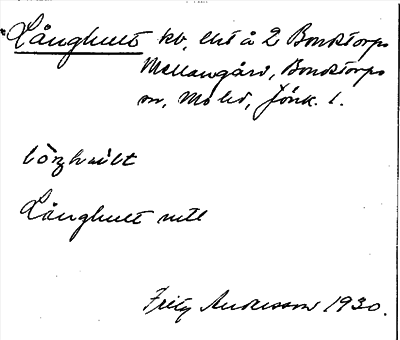 Långhult kb, ths å 2 Bondstorps
Mellangård, Bondstorps
sn, Mo hd, Jönk. l.
Långhult mtl
Fritz Andersson 1930.